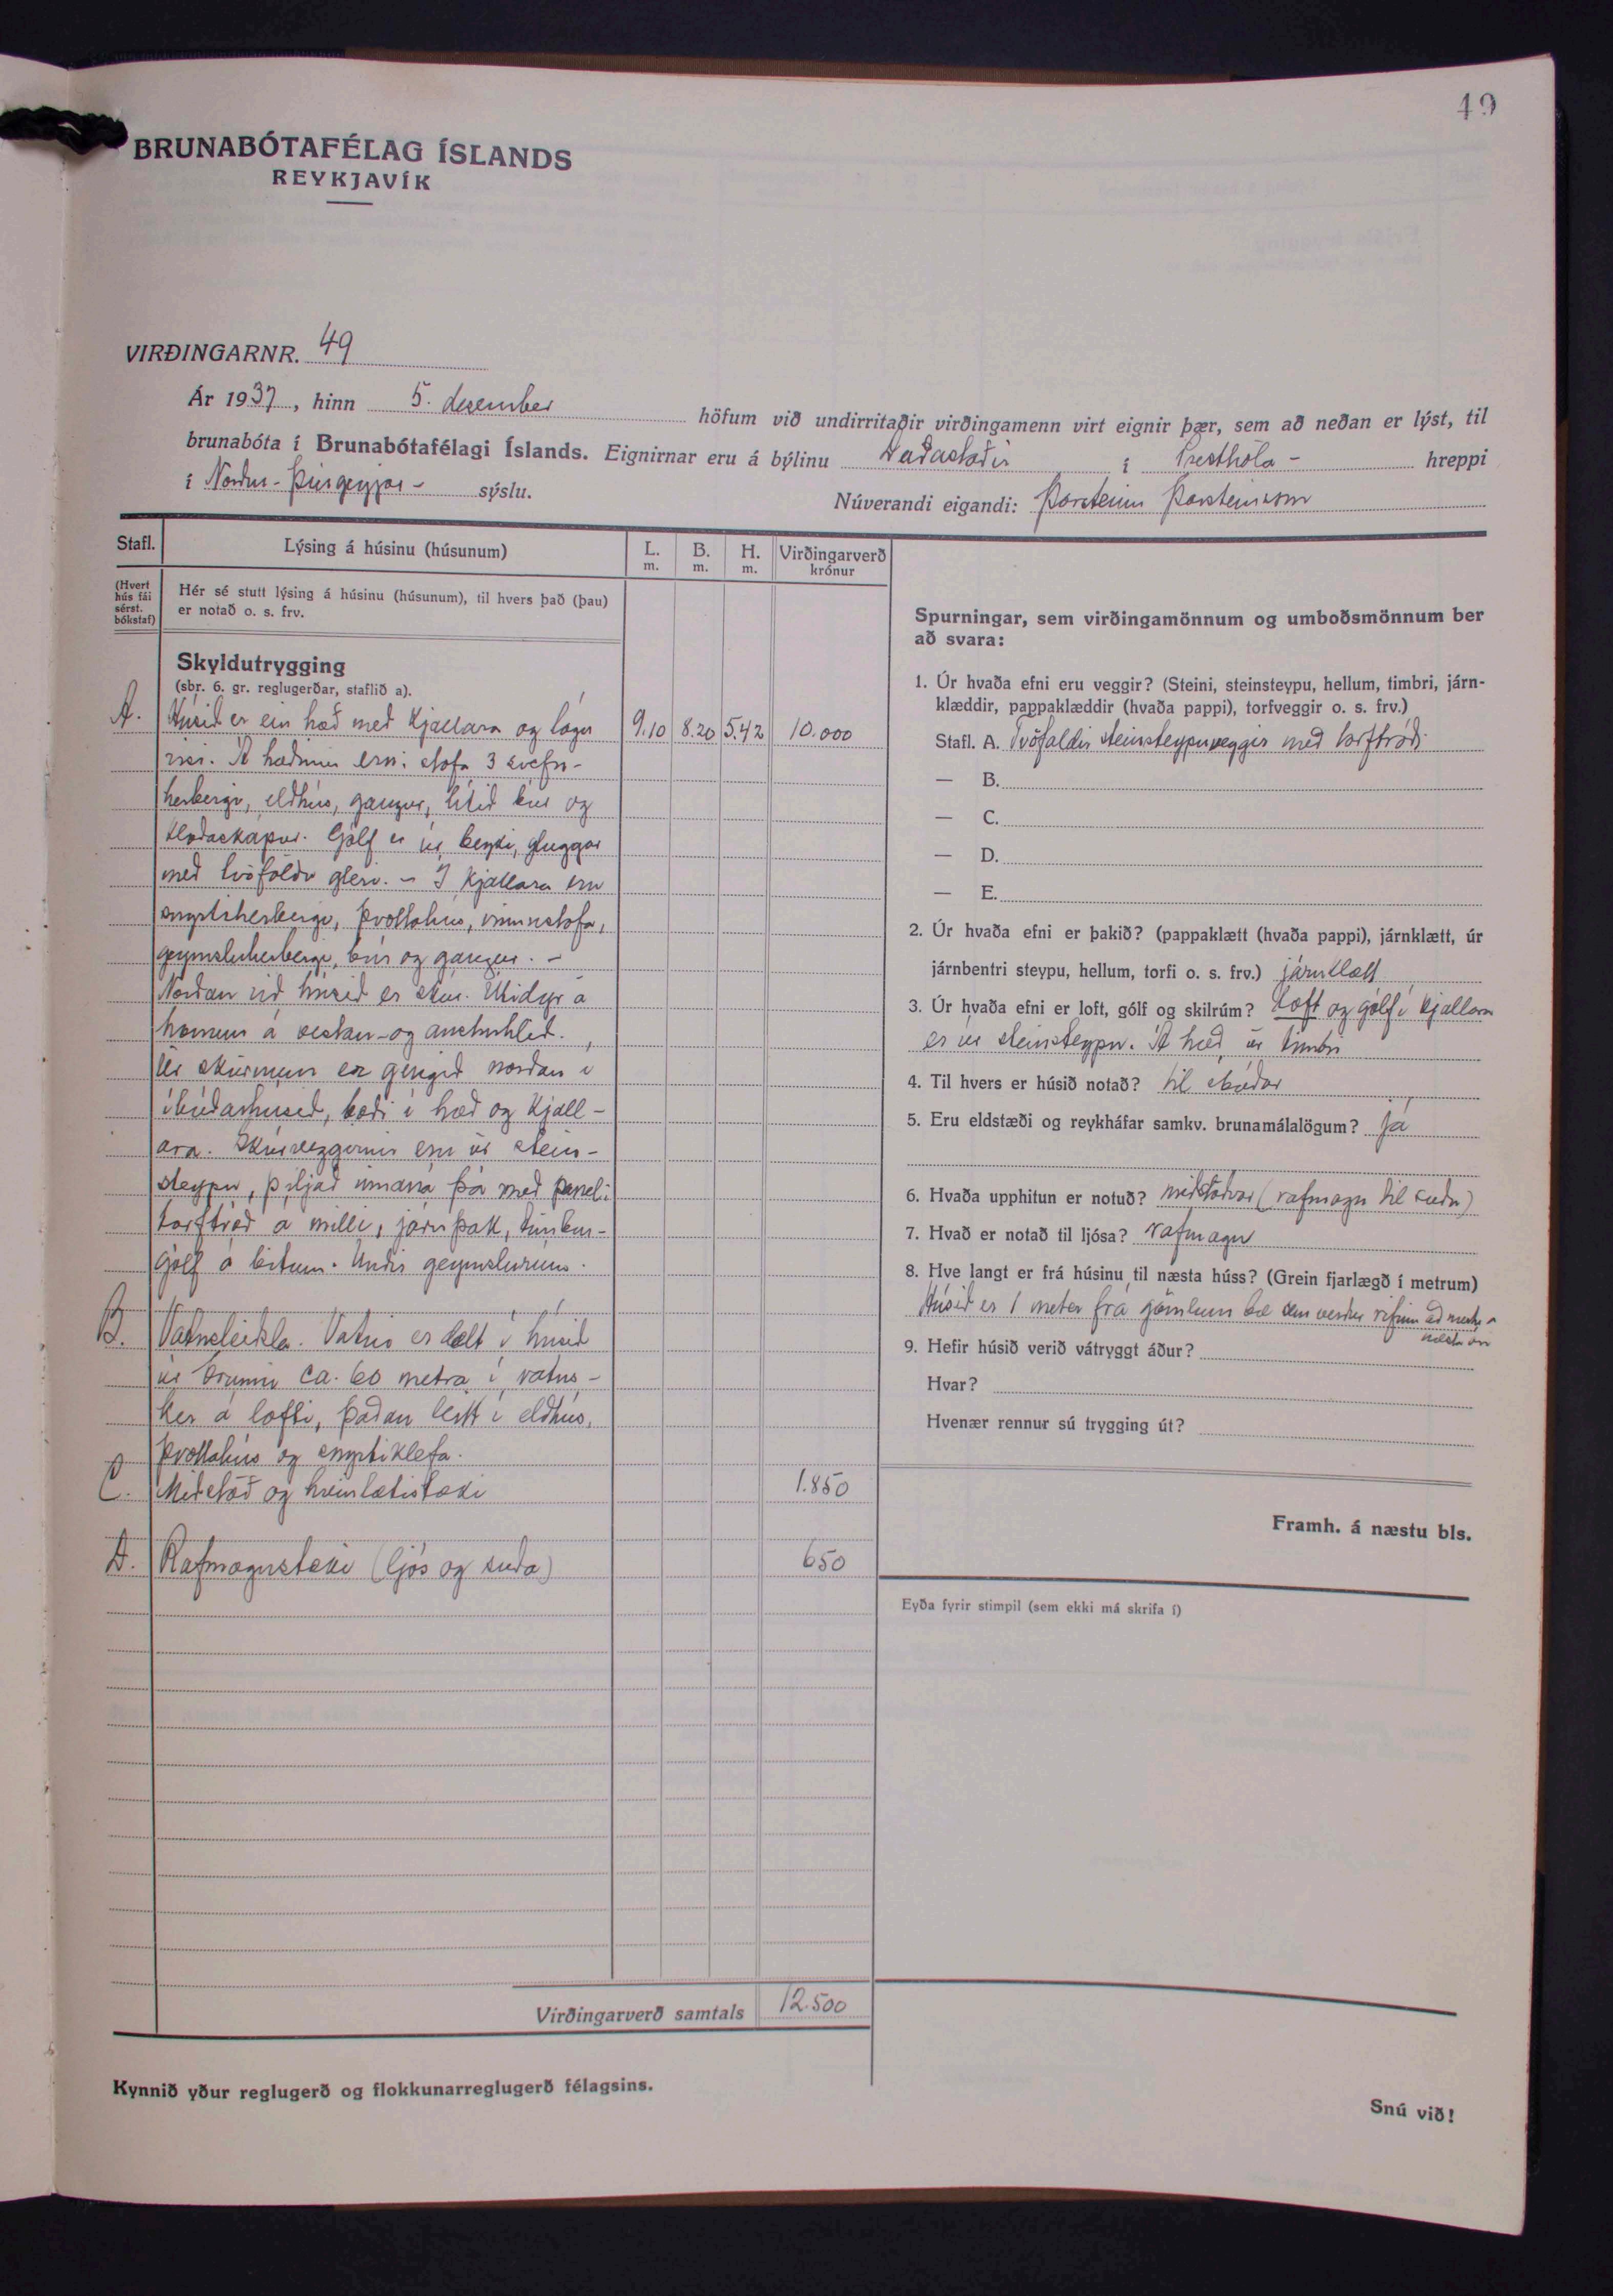 49
BRUNABÓTAFÉLAG ÍSLANDS
REYKJAVÍK
VIRÐINGARNR. 49
Ár 1937, hinn 5. desember höfum við undirritaðir virðingamenn virt eignir þær, sem að neðan er lýst, til
brunabóta í Brunabótafélagi Íslands. Eignirnar eru á býlinu Daðastaðir í Presthóla- hreppi
í Norður-Þingeyjar- sýslu. Núverandi eigandi: Þorsteinn Þorsteinsson
Stafl.
Lýsing á húsinu (húsunum)
L. m.
B. m.
H. m.
Virðingarverð krónur
(Hvert hús fái sérst. bókstaf)
Hér sé stutt lýsing á húsinu (húsunum), til hvers það (þau)
er notað o. s. frv.
Skyldutrygging
(sbr. 6. gr. reglugerðar, staflið a).
A. Húsið er ein hæð með kjallara og lágu 9.10 8.20 5.42 10.000
risi. Á hæðinni eru: stofa 3 svefn-
herbergi, eldhús, gangur, lítið búr og
klæðaskápur. Gólf er úr beyki, gluggar
með tvöföldu gleri. - Í kjallara eru
snyrtiherbergi, þvottahús, vinnustofa,
geymsluherbergi, búr og gangur. -
Norðan við húsið er skúr. Útidyr á
honum á vestan- og austurhlið.
Úr skúrnum er gengið norðan í
íbúðarhúsið, bæði í hæð og kjall-
ara. Skúrveggirnir eru úr stein-
steypu, þiljað innaná þá með panel:
torftróð á milli, járnþak, timbur-
gólf á bitum. Undir geymslurúm.
B. Vatnsleiðsla. Vatnið er dælt í húsið
úr brunni ca. 60 metra í vatns-
ker á lofti, þaðan leitt í eldhús,
þvottahús og snyrtiklefa.
C. Miðstöð og hreinlætistæki 1.850
D. Rafmagnstæki (ljós og suða) 650
Virðingarverð samtals 12.500
Kynnið yður reglugerð og flokkunarreglugerð félagsins.
Spurningar, sem virðingamönnum og umboðsmönnum ber
að svara:
1. Úr hvaða efni eru veggir? (Steini, steinsteypu, hellum, timbri, járn-
klæddir, pappaklæddir (hvaða pappi), torfveggir o. s. frv.)
Stafl. A. Tvöfaldir steinsteypuveggir með torftróði
— B.
— C.
— D.
— E.
2. Úr hvaða efni er þakið? (pappaklætt (hvaða pappi), járnklætt, úr
járnbentri steypu, hellum, torfi o. s. frv.) járnklætt
3. Úr hvaða efni er loft, gólf og skilrúm? Loft og gólf í kjallara
er úr steinsteypu. Á hæð úr timbri
4. Til hvers er húsið notað? til íbúðar
5. Eru eldstæði og reykháfar samkv. brunamálalögum? Já
6. Hvaða upphitun er notuð? miðstöðvar (rafmagn til suðu)
7. Hvað er notað til ljósa? rafmagn
8. Hve langt er frá húsinu til næsta húss? (Grein fjarlægð í metrum)
Húsið er 1 meter frá gömlum bæ sem verður rifinn að mestu á
næsta ári
9. Hefir húsið verið vátryggt áður?
Hvar?
Hvenær rennur sú trygging út?
Framh. á næstu bls.
Eyða fyrir stimpil (sem ekki má skrifa í)
Snú við!